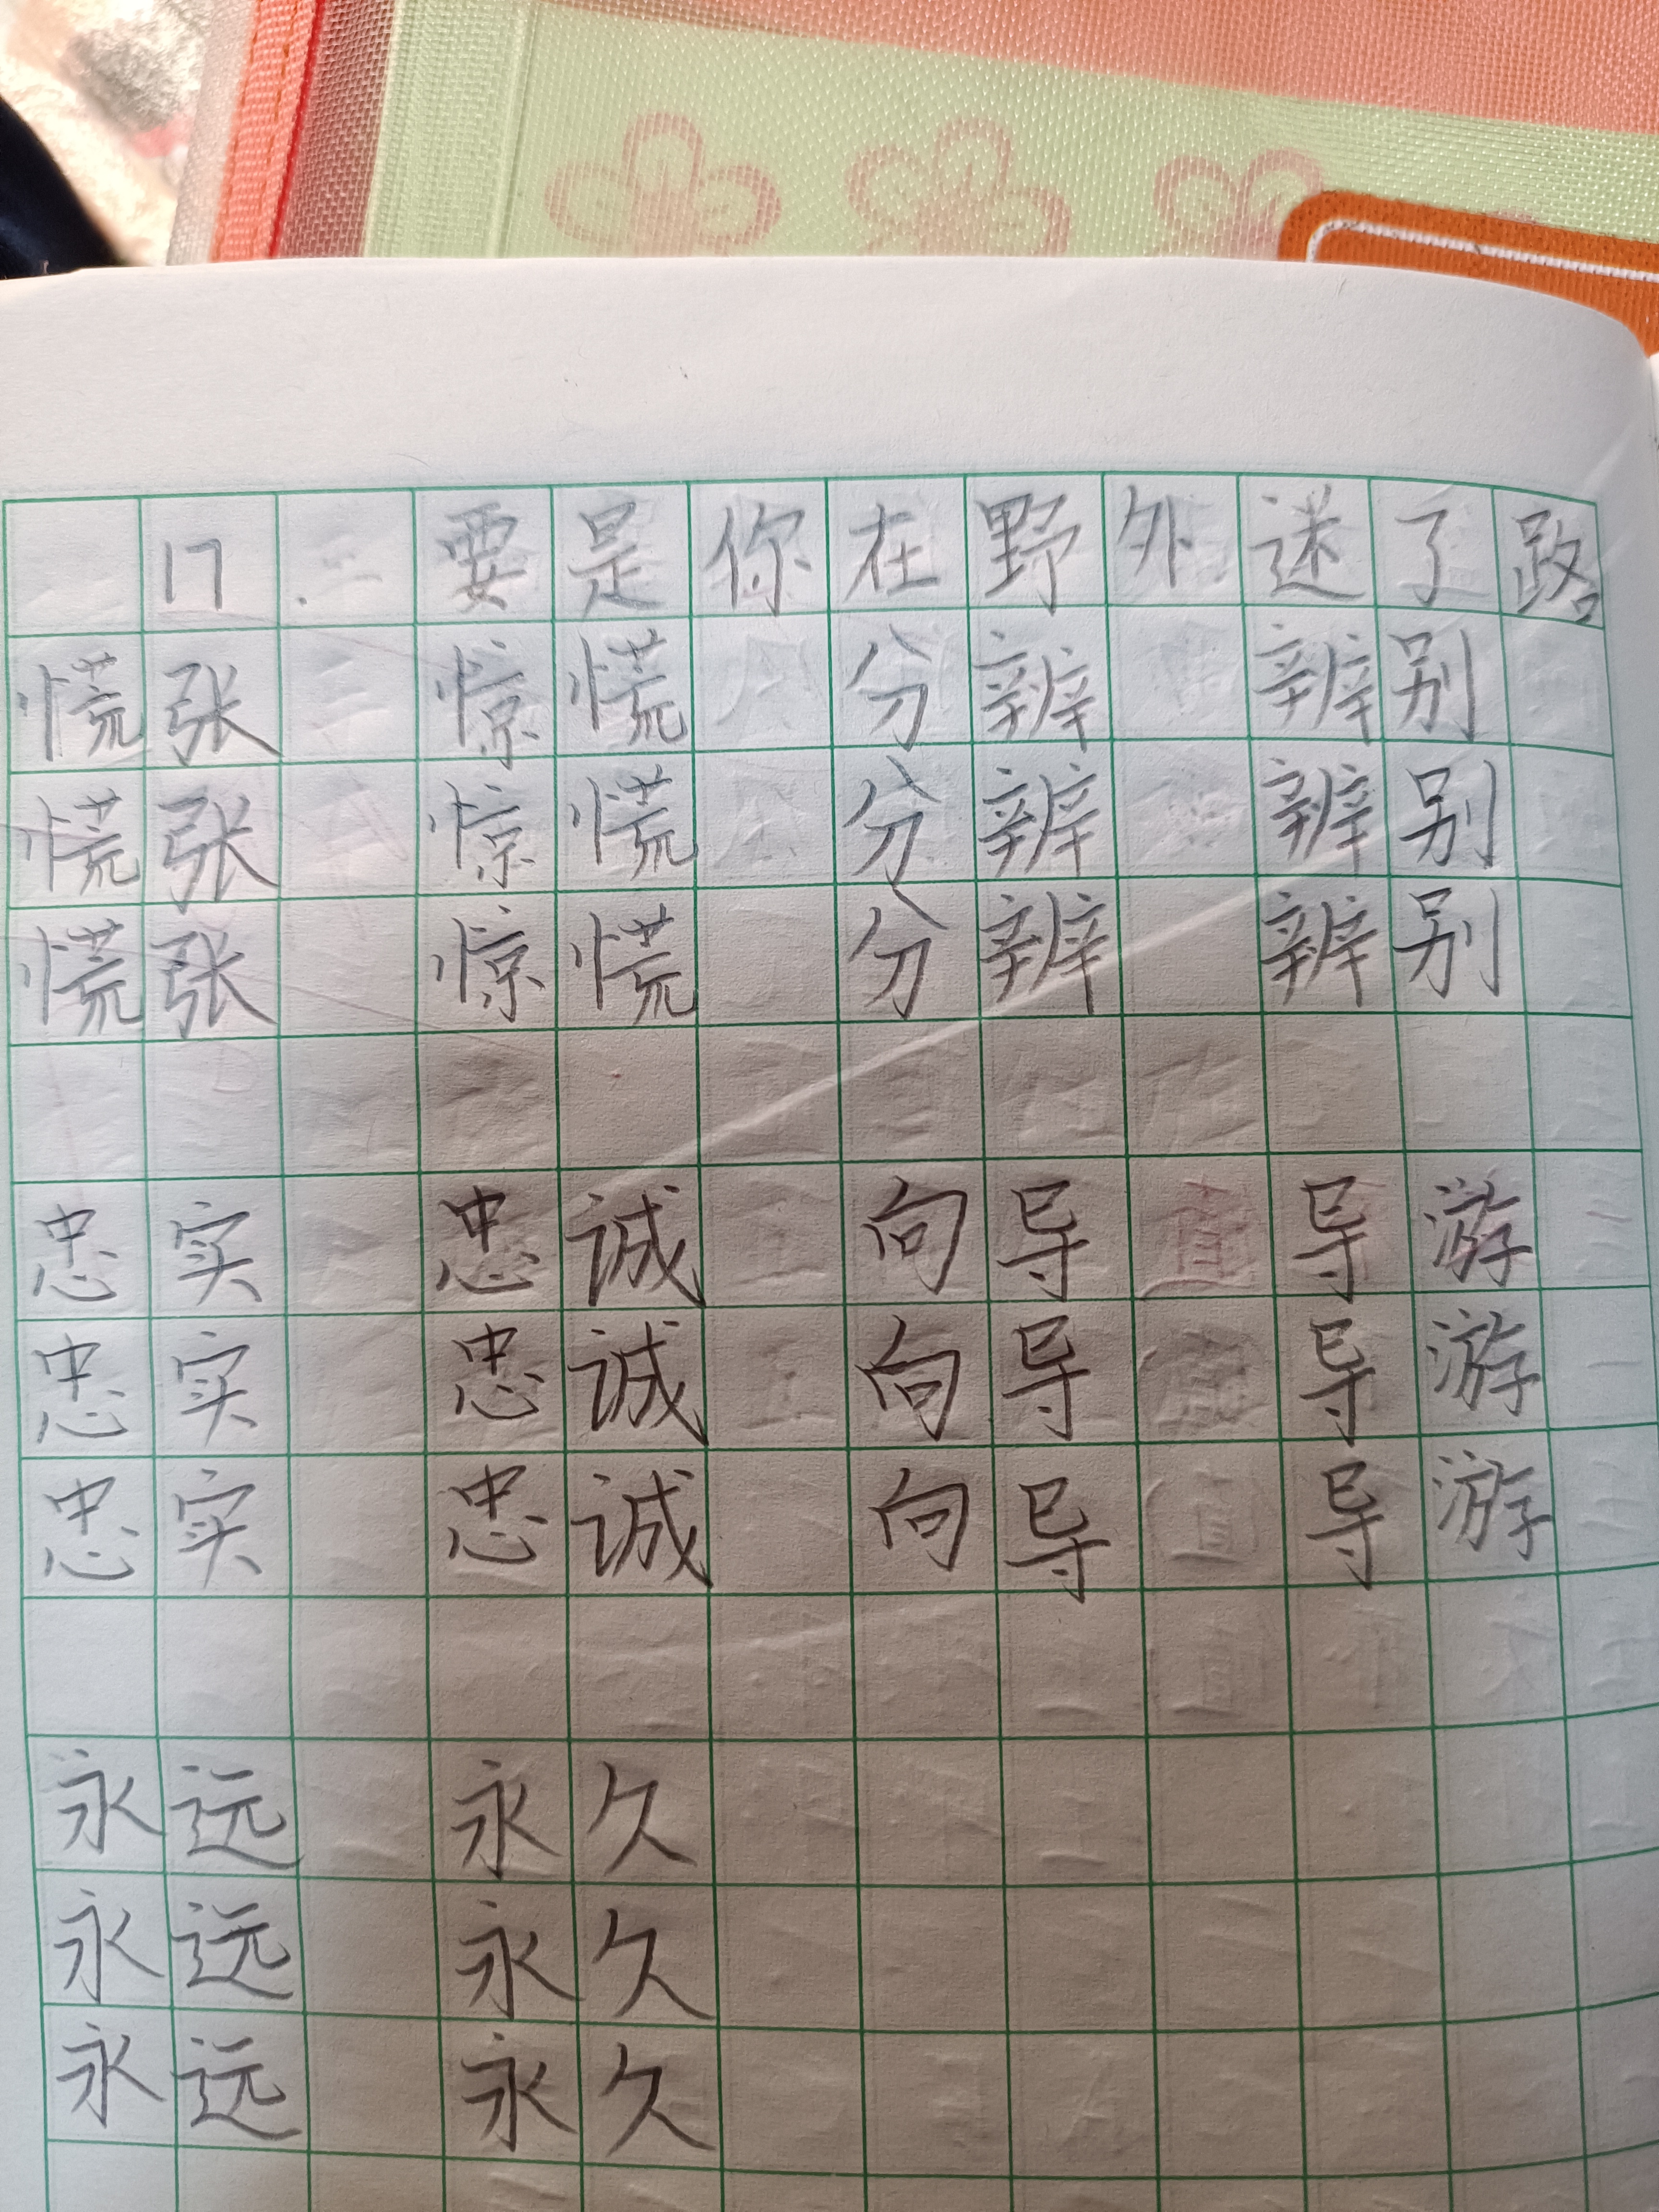 17. 要是你在野外迷了路。
慌张 惊慌 分辨 辨别
慌张 惊慌 分辨 辨别
慌张 惊慌 分辨 辨别
忠实 忠诚 向导 导游
忠实 忠诚 向导 导游
忠实 忠诚 向导 导游
永远 永久
永远 永久
永远 永久